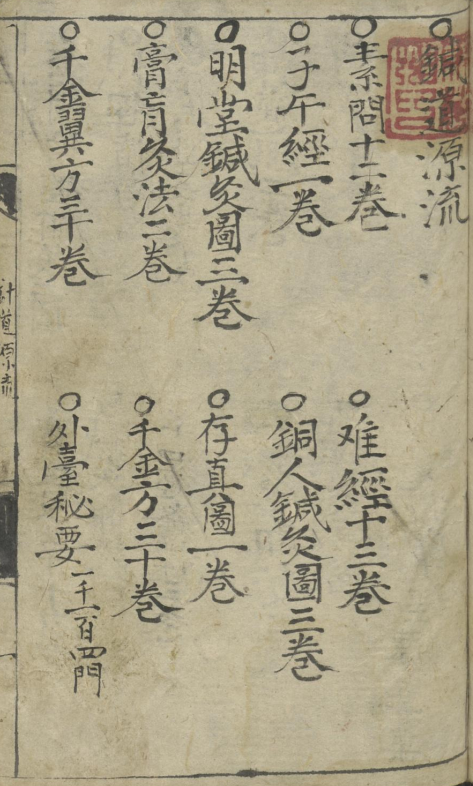 ○鍼道源流
○素問十二巻
○难經十三巻
○子午經一巻
○銅人鍼灸圖三巻
○明堂鍼灸圖三巻
○存真圖一巻
○膏肓灸法二巻
○千金方三十巻
○千金翼方三十巻
○外臺秘要一千一百四門
針道源流